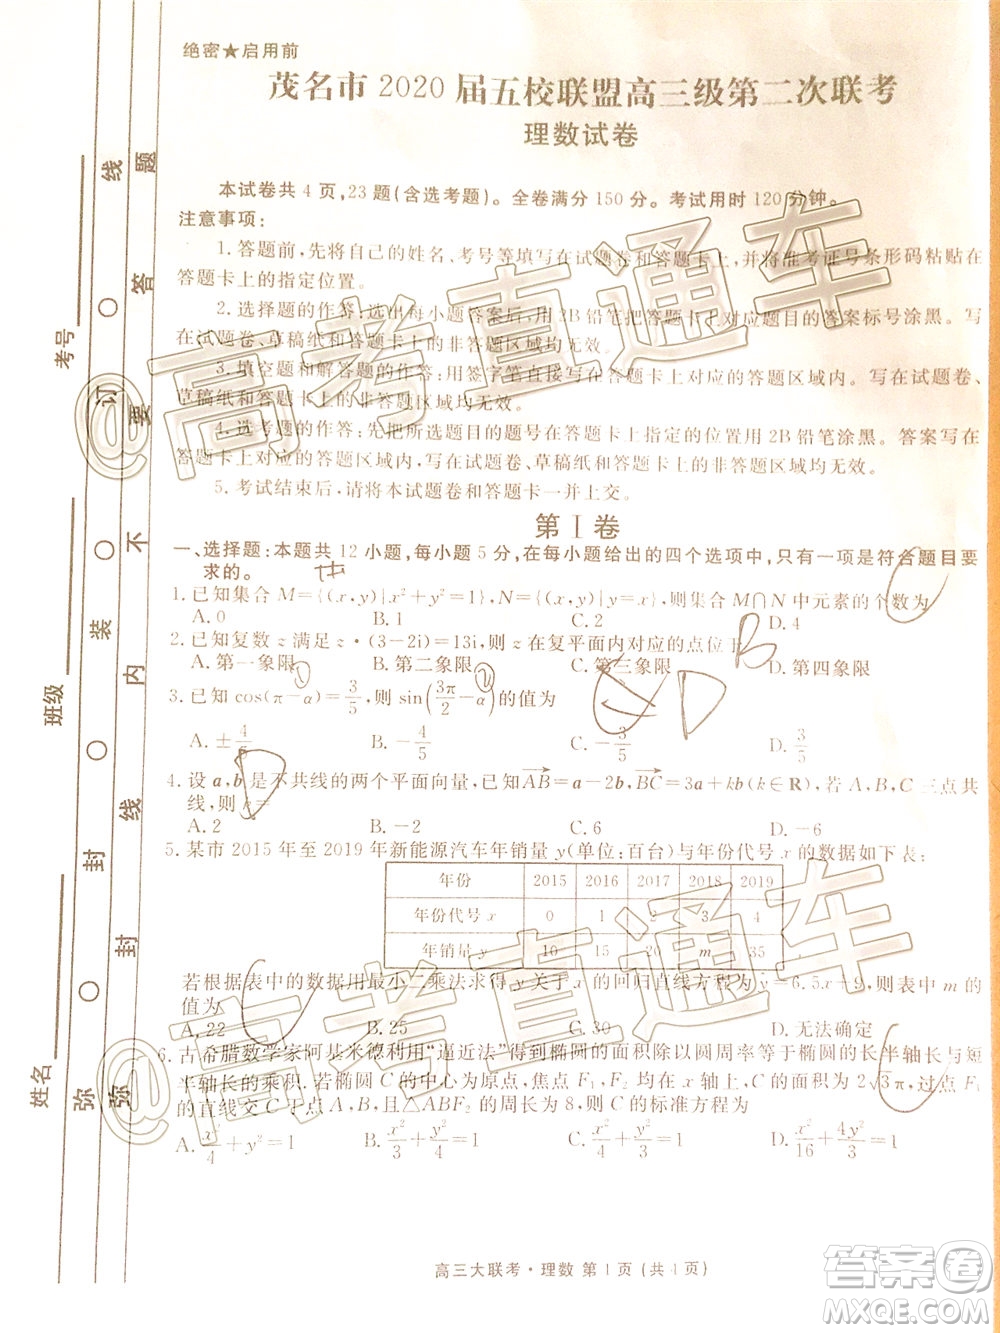 绝密★启用前
茂名市 2020 届五校联盟高三级第二次联考
理数试卷
本试卷共 4 页,23 题(含选考题)。全卷满分 150 分。考试用时 120 分钟。
注意事项:
1. 答题前,先将自己的姓名、考号等填写在试题卷和答题卡上,并将准考证号条形码粘贴在
答题卡上的指定位置。
2. 选择题的作答:每小题选出答案后,用 2B 铅笔把答题卡上对应题目的答案标号涂黑。写在
试题卷、草稿纸和答题卡上的非答题区域均无效。
3. 填空题和解答题的作答:用签字笔直接写在答题卡上对应的答题区域内。写在试题卷、
草稿纸和答题卡上的非答题区域均无效。
4. 选考题的作答:先把所选题目的题号在答题卡上指定的位置用 2B 铅笔涂黑。答案写在
答题卡上对应的答题区域内,写在试题卷、草稿纸和答题卡上的非答题区域均无效。
5. 考试结束后,请将本试题卷和答题卡一并上交。
第 Ⅰ 卷
一、选择题:本题共 12 小题,每小题 5 分,在每小题给出的四个选项中,只有一项是符合题目要
求的。
1. 已知集合 M={(x,y)|x²+y²=1},N={(x,y)|y=x},则集合 M∩N 中元素的个数为
A. 0 B. 1 C. 2 D. 4
2. 已知复数 z 满足 z·(3-2i)=13i,则 z 在复平面内对应的点位于 B
A. 第一象限 B. 第二象限 C. 第三象限 D. 第四象限
3. 已知 cos(π-α)=3/5,则 sin(3π/2-α)的值为 D
A. ±4/5 B. -4/5 C. -3/5 D. 3/5
4. 设 a,b 是不共线的两个平面向量,已知AB=a-2b,BC=3a+kb(k∈R),若 A,B,C 三点共
线,则 k= D
A. 2 B. -2 C. 6 D. -6
5. 某市 2015 年至 2019 年新能源汽车年销量 y(单位:百台)与年份代号 x 的数据如下表:
年份 2015 2016 2017 2018 2019
年份代号 x 0 1 2 3 4
年销量 y 10 15 20 m 35
若根据表中的数据用最小二乘法求得 y 关于 x 的回归直线方程为 y=6.5x+9,则表中 m 的
值为
A. 22 B. 25 C. 30 D. 无法确定
6. 古希腊数学家阿基米德利用“逼近法”得到椭圆的面积除以圆周率等于椭圆的长半轴长与短
半轴长的乘积. 若椭圆 C 的中心为原点,焦点 F₁,F₂ 在 x 轴上,椭圆 C 的面积为 2√3π,过点 F₁
的直线交 C 于点 A,B,且△ABF₂ 的周长为 8,则 C 的标准方程为
A. x²/4+y²=1 B. x²/3+y²/4=1 C. x²/4+y²/3=1 D. x²/16+4y²/3=1
高三大联考·理数 第 1 页(共 4 页)
考号
班级
姓名
弥 封 装 订 线
弥 封 线 内 不 要 答 题
@高考直通车
@高考直通车
答案圈
MXQE.COM